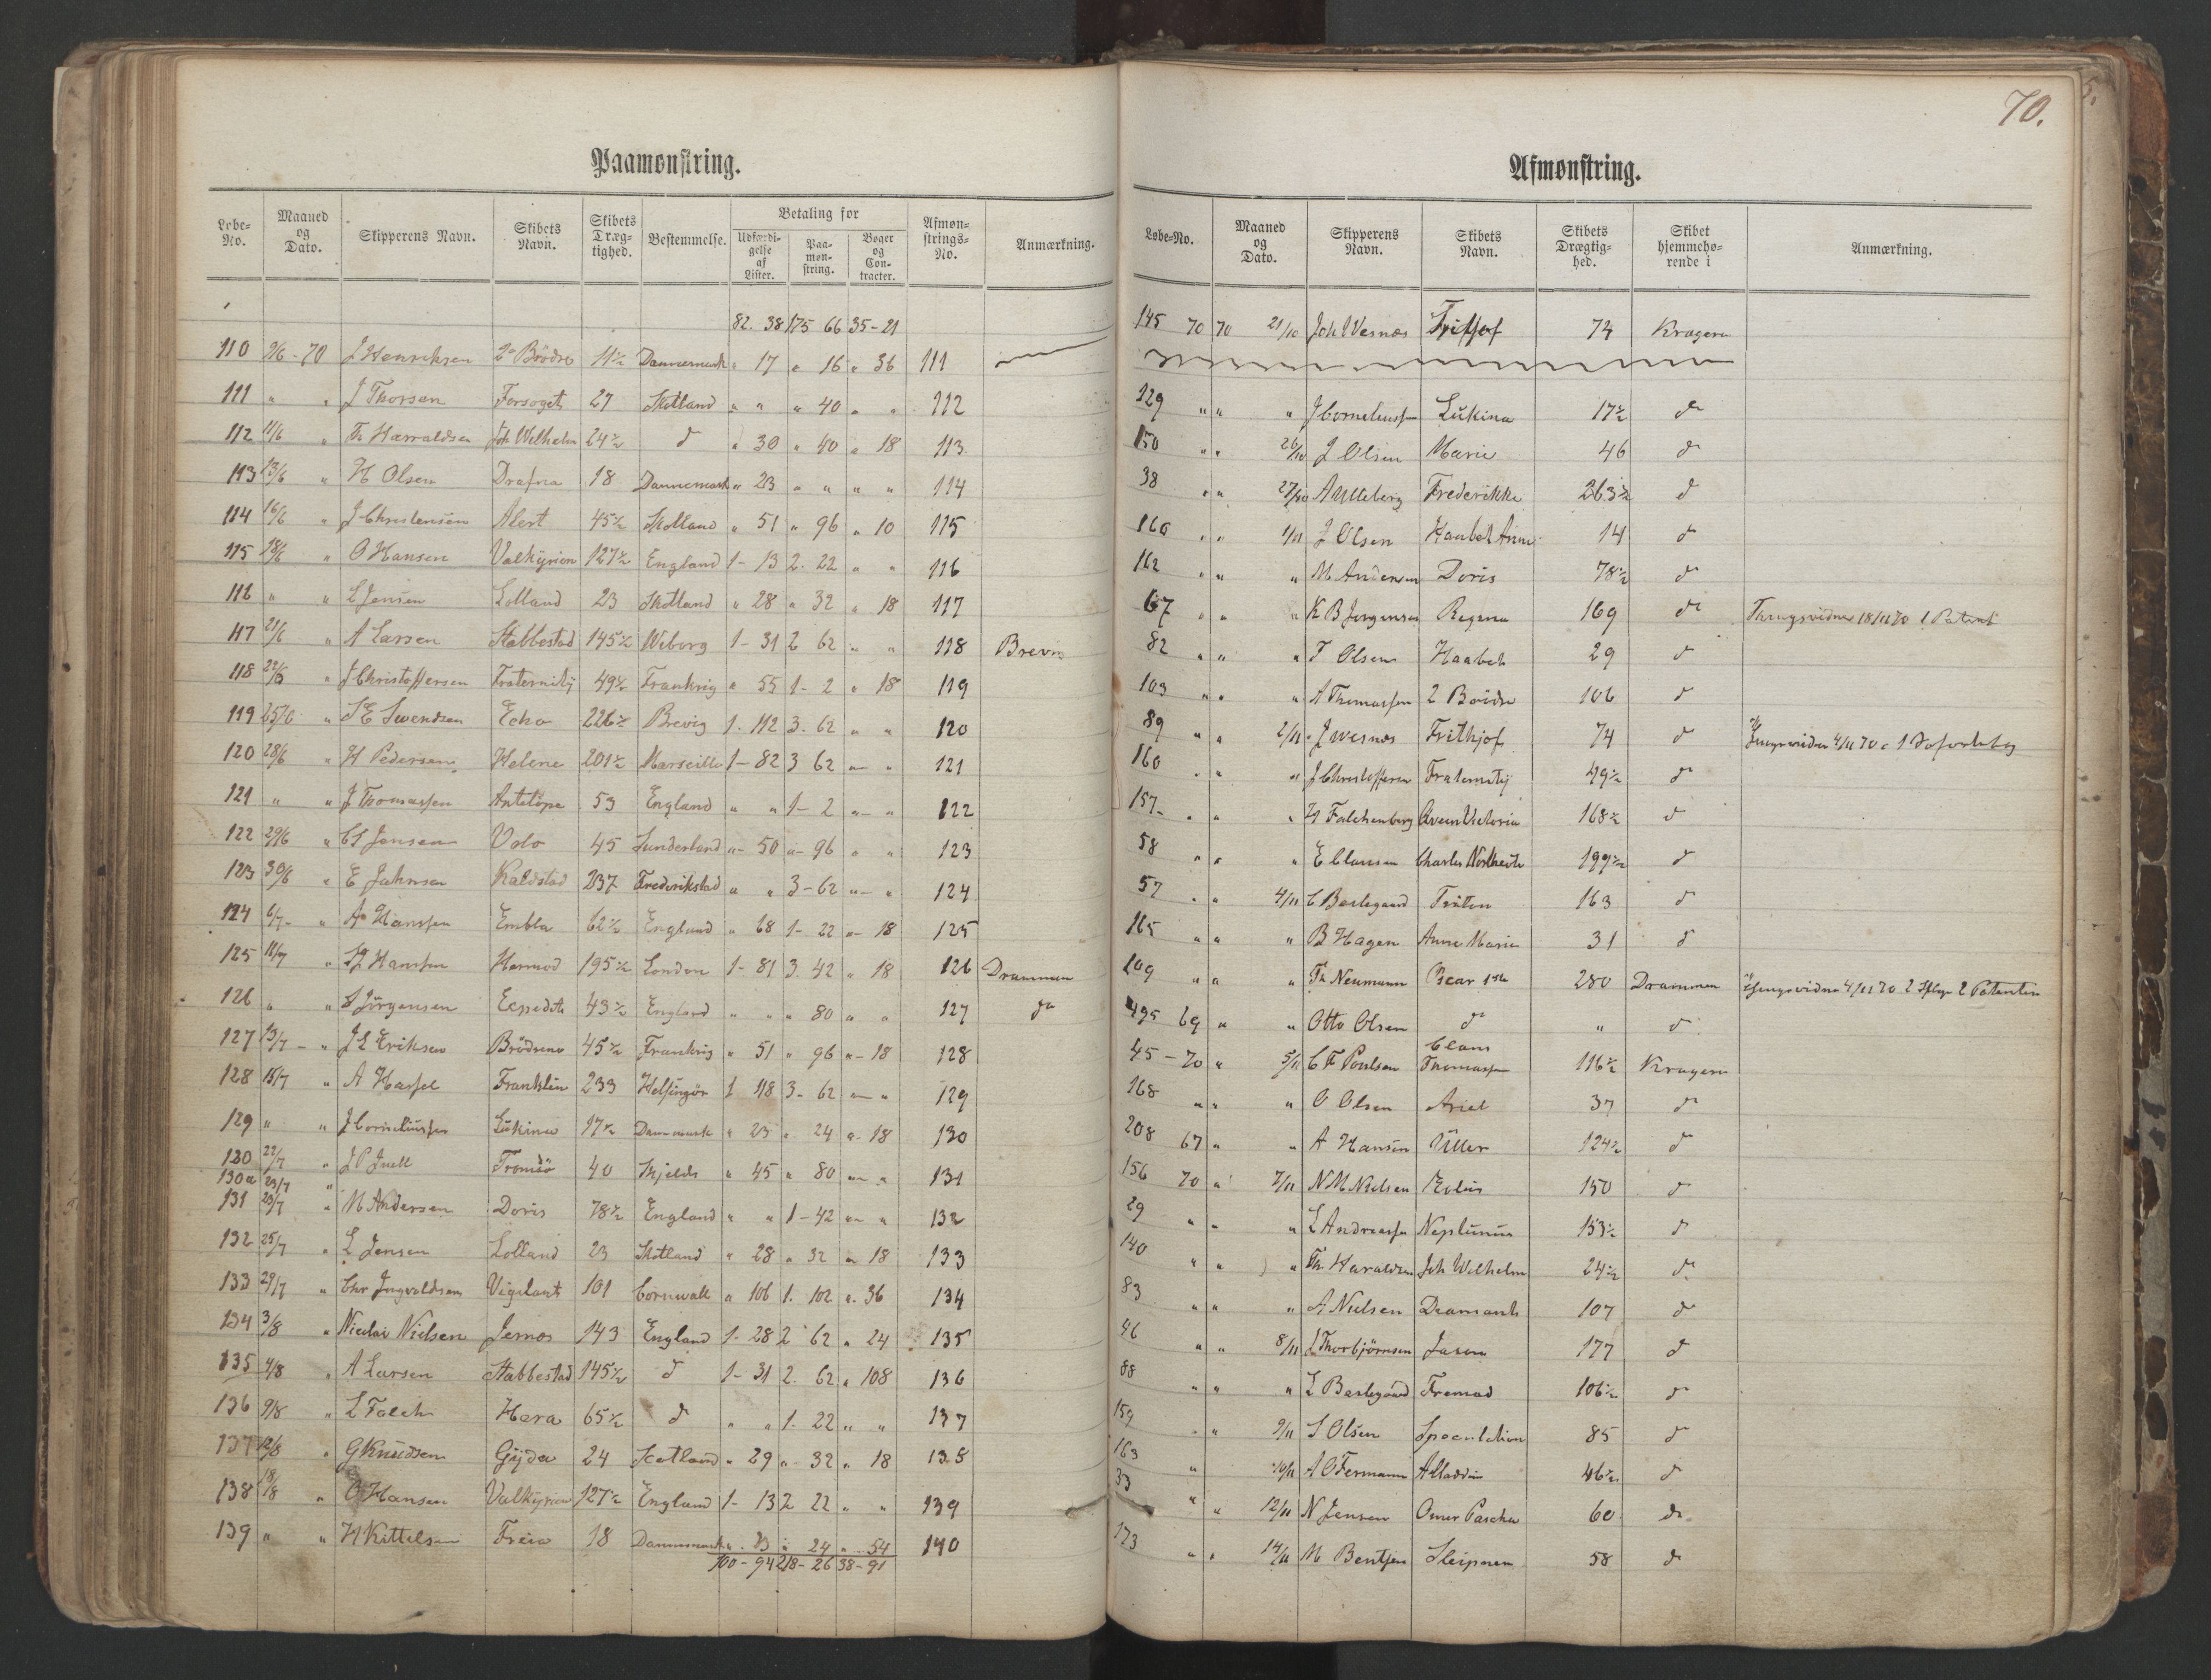 Paamønstring.
Løbe-No. Maaned og Dato. Skipperens Navn. Skibets Navn. Skibets Dræg-tighed. Bestemmelse. Betaling for Udfærdi-gelse af Lister. Paa-møn-string. Bøger og Con-tracter. Afmøn-strings-No. Anmærkning.
82. 38 175 66 35-21
110 9/6-70 J Henriksen 2 Brödre 11½ Dannemark " 17 " 16 " 36 111
111 " " J Thorsen Forsøget 27 Skotland " " " 40 " " 112
112 11/6 " Th Harraldsen Joh Wilhelm 24½ do " 30 " 40 " 18 113
113 13/6 " H Olsen Drafna 18 Dannemark " 23 " " " " 114
114 16/6 " J Christensen Alert 45½ Skotland " 51 " 96 " 10 115
115 18/6 " O Hansen Valkyrien 127½ England 1-13 2. 22 " " 116
116 " " L Jensen Lolland 23 Skotland " 28 " 32 " 18 117
117 21/6 " A Larsen Stabbestad 145½ Wiborg 1-31 2 62 " " 118 Brevig
118 22/6 " J Christoffersen Fraternity 49½ Frankrig " 55 1-2 " 18 119
119 25/6 " S E Svendsen Echo 226½ Brevig 1. 112 3. 62 " " 120
120 28/6 H Pedersen Helene 201½ Marseille 1-82 3 62 " " 121
121 " " J Thomassen Antilope 53 England " " 1-2 " " 122
122 29/6 " C S Jensen Volo 45 Sunderland " 50 " 96 " " 123
123 30/6 " E Jahnsen Kaldstad 237 Frederikstad " " 3-62 " " 124
124 6/7- " A Hanssen Embla 62½ England " 68 1-22 " 18 125
125 11/7 " Hanssen Hermod 195½ London 1-81 3. 42 " 18 126 Drammen
126 " " S Jörgensen Expedit 43½ England " " " 80 " " 127 do
127 13/7 - " J L Eriksen Brödrene 45½ Frankrig " 51 " 96 " 18 128
128 15/7 " A Hassel Franklin 233 Helsingör 1 118 3-62 " " 129
129 " " J Corneliussen Lukina 17½ Danmark " 23 " 24 " 18 130
130 22/7 " J P Juell Tromsö 40 Skjelds " 45 " 80 " " 131
130a 23/7 "
131 23/7 " M Andersen Doris 78½ England " " 1-42 " " 132
132 25/7 " L Jensen Lolland 23 Skotland " 28 " 32 " 18 133
133 29/7 " Chr Ingvaldsen Vigilant 101 Cornwall " 106 1. 102 " 36 134
134 3/8 " Nicolai Nielsen Jernæs 143 England 1-28 2 62 " 24 135
135 4/8 " A Larsen Stabbestad 145½ do 1-31 2. 62 " 108 136
136 9/8 " L Falck Hara 65½ do " " 1-22 " " 137
137 12/8 " G Knudsen Gyda 24 Scotland " 29 " 32 " 18 138
138 18/8 " O Hansen Valkyrien 127½ England 1-13 2 22 " " 139
139 " " H Kittelsen Freia 18 Dannemark " 23 " 24 " 54 140
100-94 218-26 38-91
70.
Afmønstring.
Løbe-No. Maaned og Dato. Skipperens Navn. Skibets Navn. Skibets Drægtig-hed. Skibet hjemmehø-rende i Anmærkning.
145 70 70 21/10 Joh Wesnæs Frithjof 74 Kragerø
129 " " " J Corneliussen Lukina 17½ do
150 " " 26/10 J Olsen Marie 46 do
38 " " 27/10 A Ulleberg Frederikke 263½ do
160 " " 1/11 J Olsen Haabet Anna 14 do
162 " " " M Andersen Doris 78½ do
67 " " " K B Jørgensen Regina 169 do Thingsvidne 18/11 70 1 Patent
82 " " " T Olsen Haabet 29 do
103 " " " A Thomassen 2 Brödre 106 do
89 " " 2/11 J Wesnæs Frithjof 74 do
160 " " " J Christoffersen Fraternity 49½ do
157- " " " Falckenberg Qveen Victoria 168½ do
58 " " " E Clausen Charles 199½ do
57 " " 4/11 C Barlegaard Triton 163 do
165 " " " B Hagen Anne Marie 31 do
109 " " " Th Neumann Oscar 1ste 280 Drammen
495 69 " " Otto Olsen do " do
45-70 " 5/11 C F Poulsen Claus Thomassen 116½ Kragerø
168 " " " O Olsen Ariel 37 do
208 67 " " A Hansen Uller 124½ do
156 70 " 7/11 N M Nielsen Eolus 150 do
29 " " " L Andreassen Neptunus 153½ do
140 " " " Th Haraldsen Joh Wilhelm 24½ do
83 " " " A Nielsen Diamant 107 do
46 " " 8/11 Thorbjörnsen Jason 177 do
88 " " " L Barlegaard Fremad 106½ do
159 " " 9/11 S Olsen Speculation 85 do
163 " 10/11 A O Fermann Alladdin 46½ do
33 " " 12/11 N Jensen Omer Pascha 60 do
173 " " 14/11 M Bentzen Sleipner 58 do